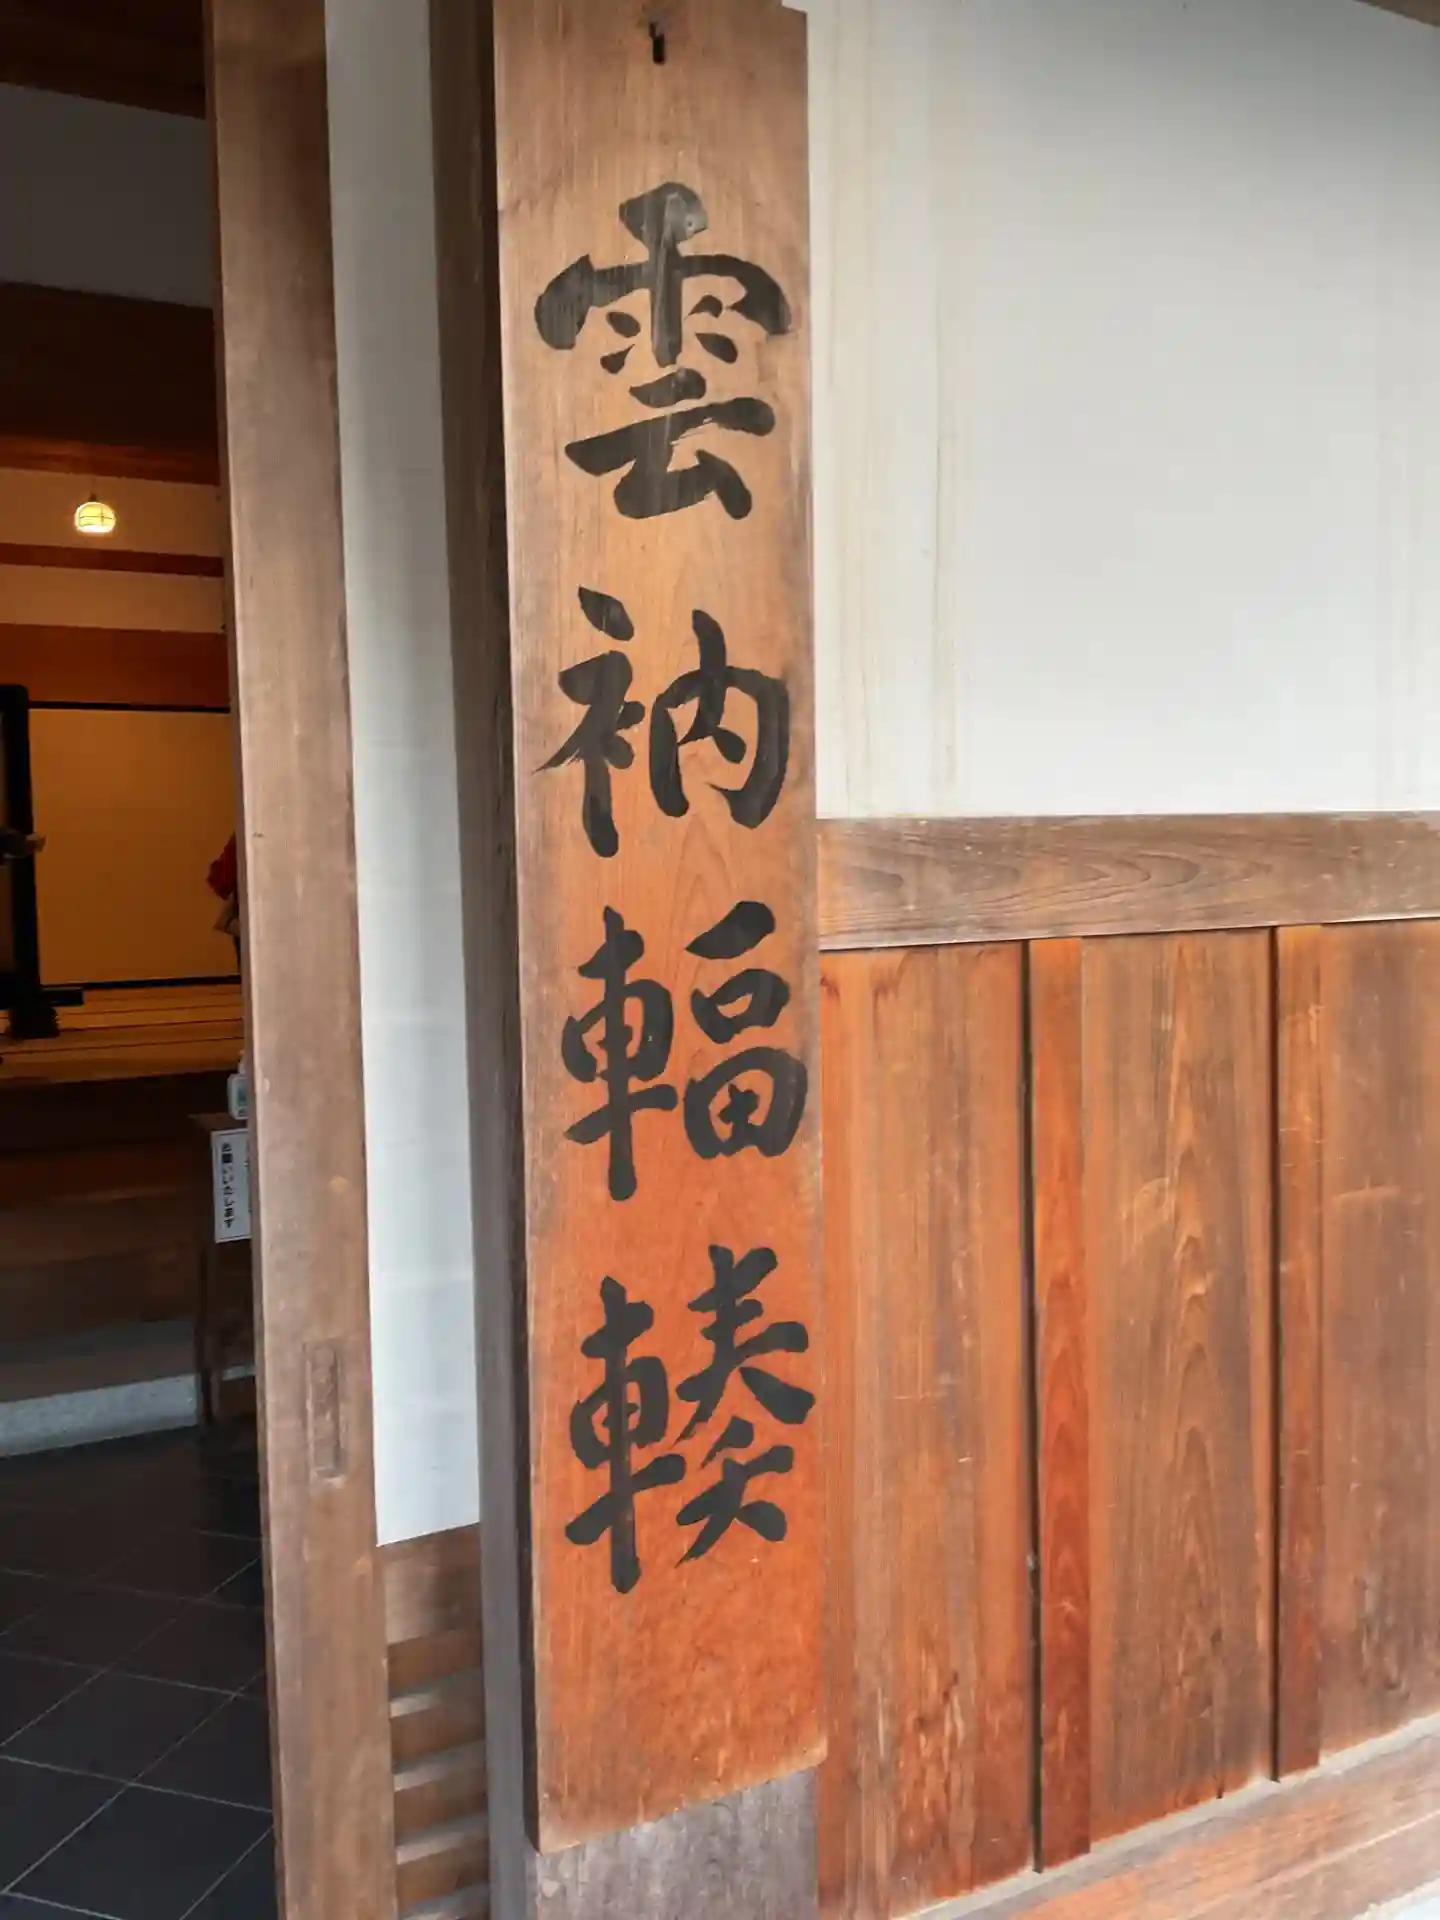 雲衲輻輳
お願いいたします